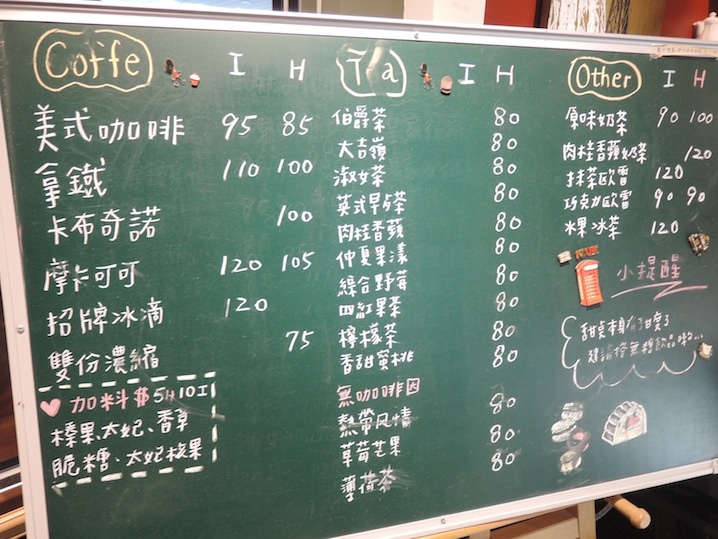 Coffe I H
美式咖啡 95 85
拿鐵 110 100
卡布奇諾 100
摩卡可可 120 105
招牌冰滴 120
雙份濃縮 75
加料$ 5H 10I
榛果、太妃、香草
脆糖、太妃核果
Tea I H
伯爵茶 80
大吉嶺 80
淑女茶 80
英式早茶 80
肉桂香蘋 80
仲夏果漾 80
綜合野莓 80
四紅果茶 80
檸檬茶 80
香甜蜜桃 80
無咖啡因
熱帶风情 80
草莓芒果 80
薄荷茶 80
Other I H
原味奶茶 90 100
肉桂香蘋奶茶 120
抹茶欧蕾 120
巧克力欧蕾 90 90
水果冰茶 120
小提醒
甜桌本身有了甜度了
建議搭無糖飲品喲...